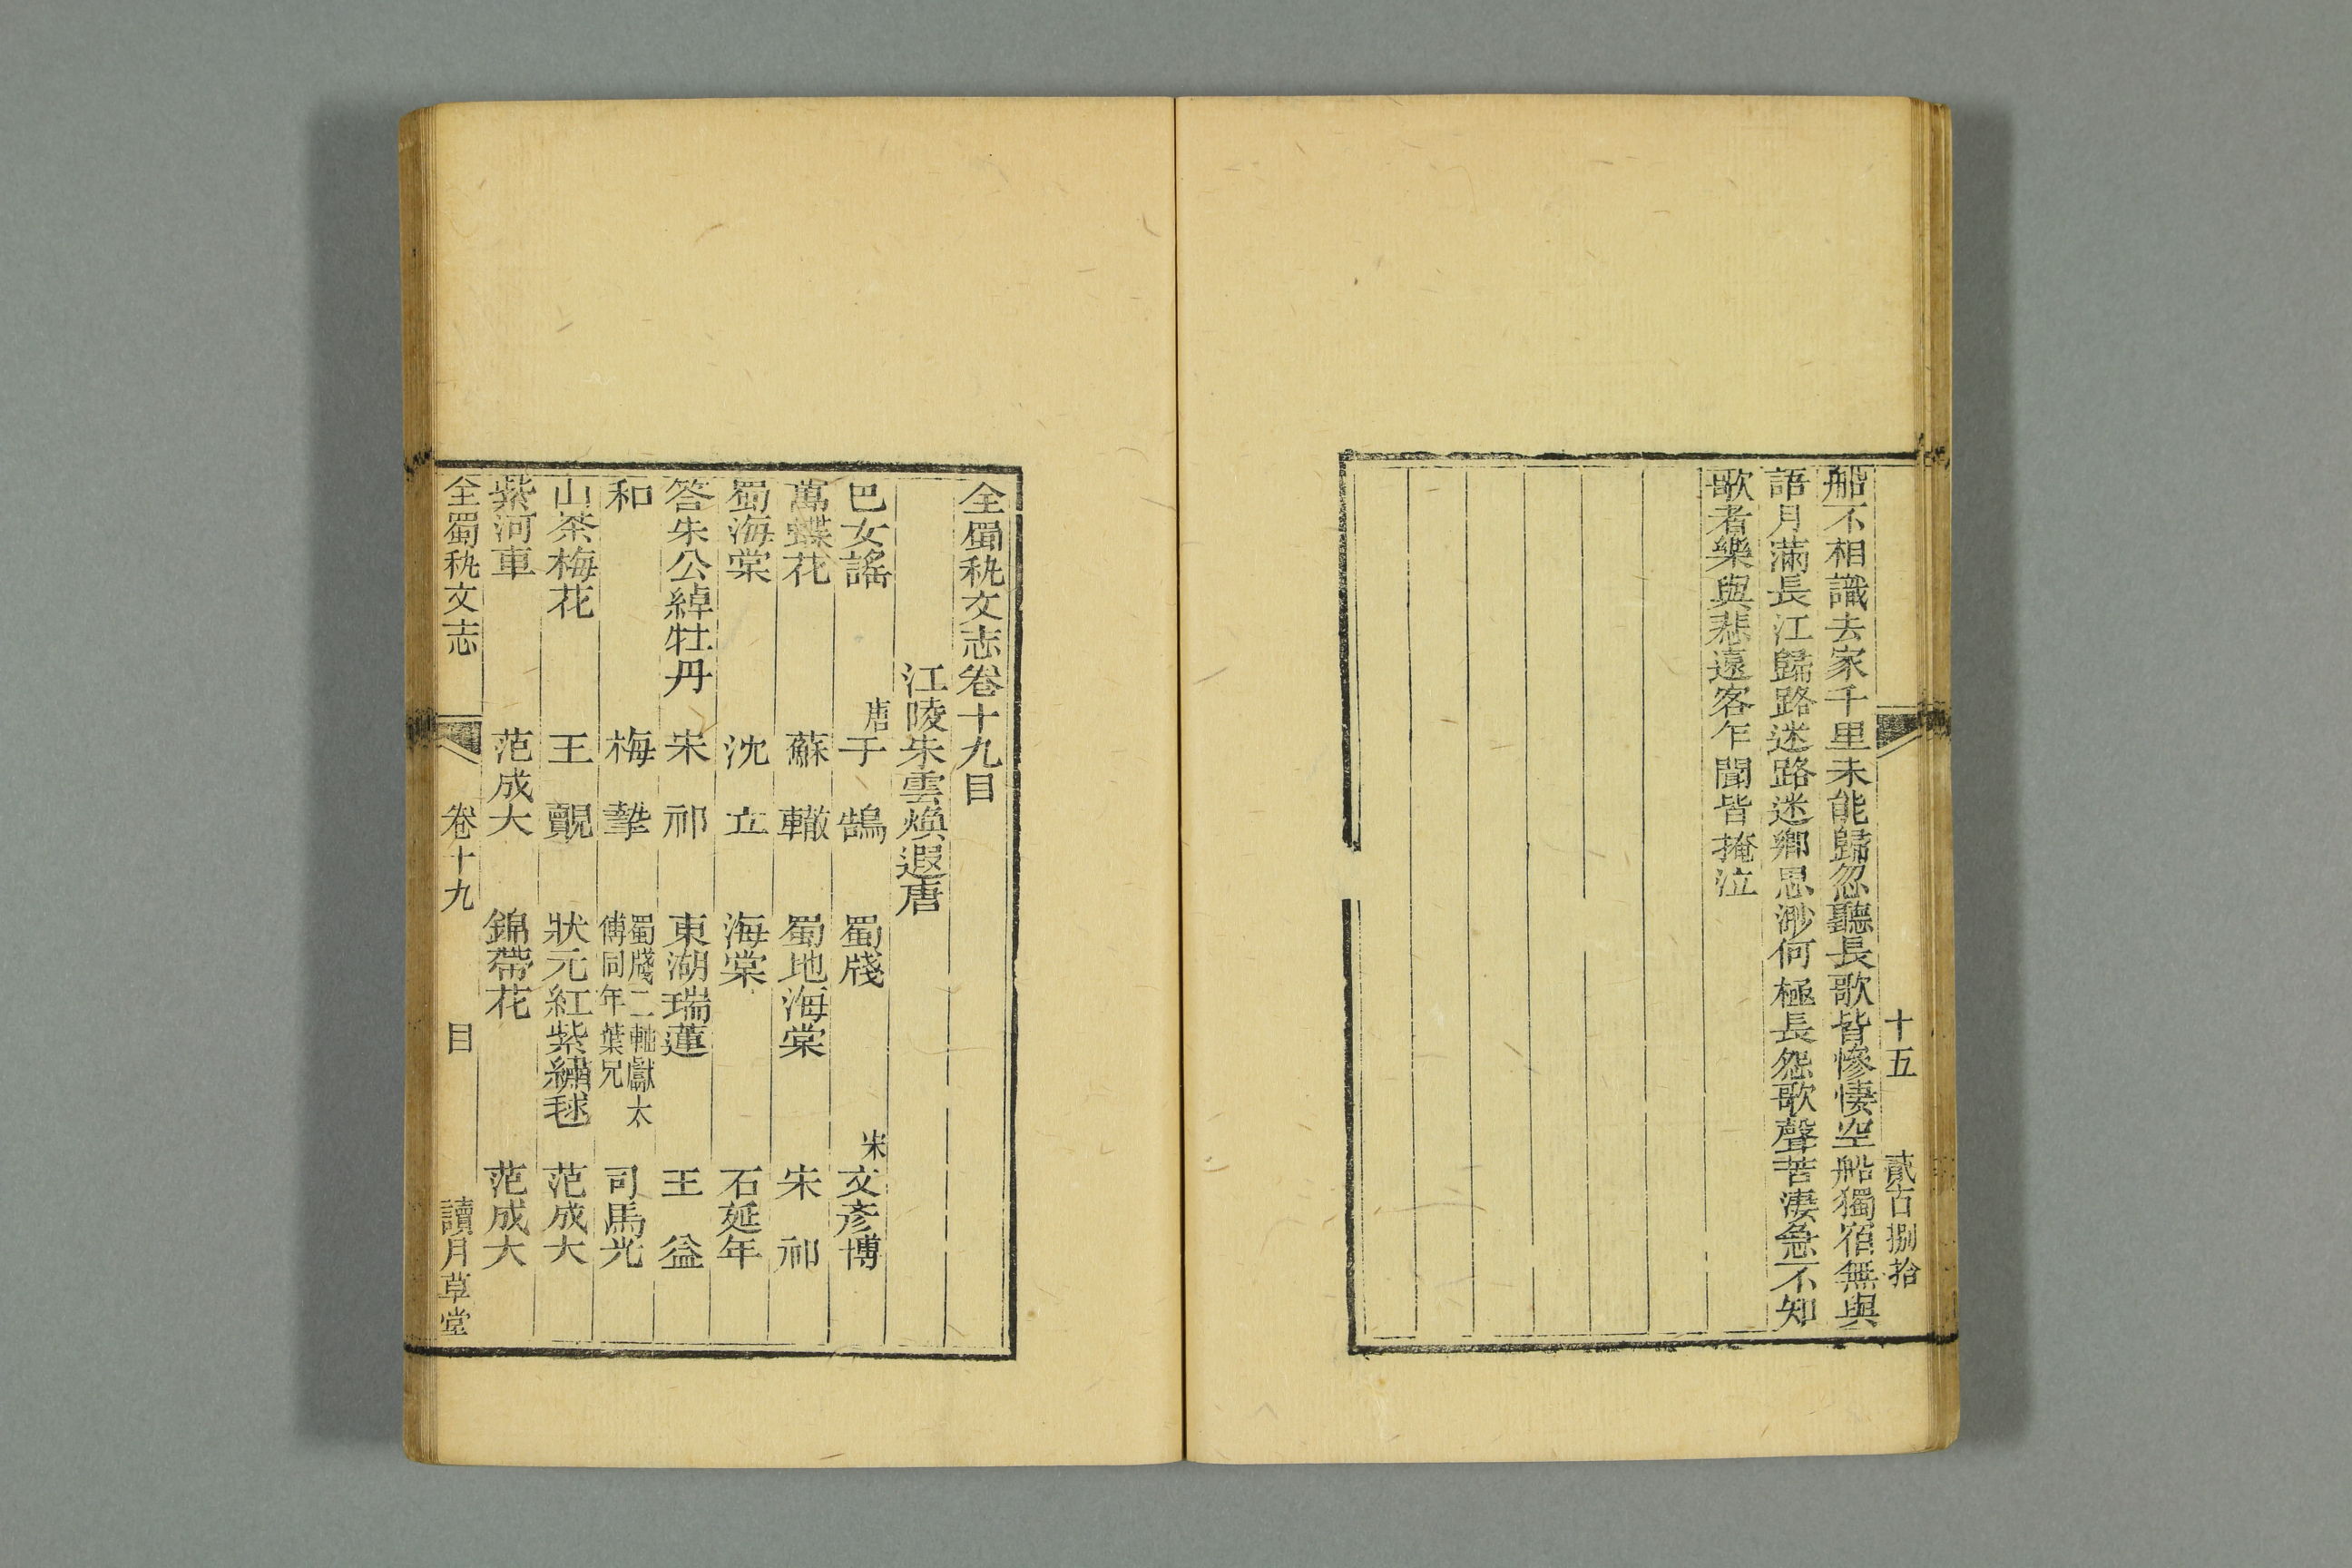 船不相識去家千里未能歸忽聽長歌皆慘悽空船獨宿無與
語月滿長江歸路迷路迷鄉思渺何極長怨歌聲苦淒急不知
歌者樂與悲遠客乍聞皆掩泣
十五 貳百捌拾
全蜀秇文志卷十九目
江陵朱雲煥遐唐
巴女謠 唐于鵠 蜀牋 宋文彥博
萬蝶花 蘇轍 蜀地海棠 宋祁
蜀海棠 沈立 海棠 石延年
答朱公綽牡丹 宋祁 東湖瑞蓮 王益
和 梅摯 蜀牋二軸獻太傅同年葉兄 司馬光
山茶梅花 王覿 狀元紅紫繡毬 范成大
紫河車 范成大 錦帶花 范成大
全蜀秇文志 卷十九 目 讀月草堂